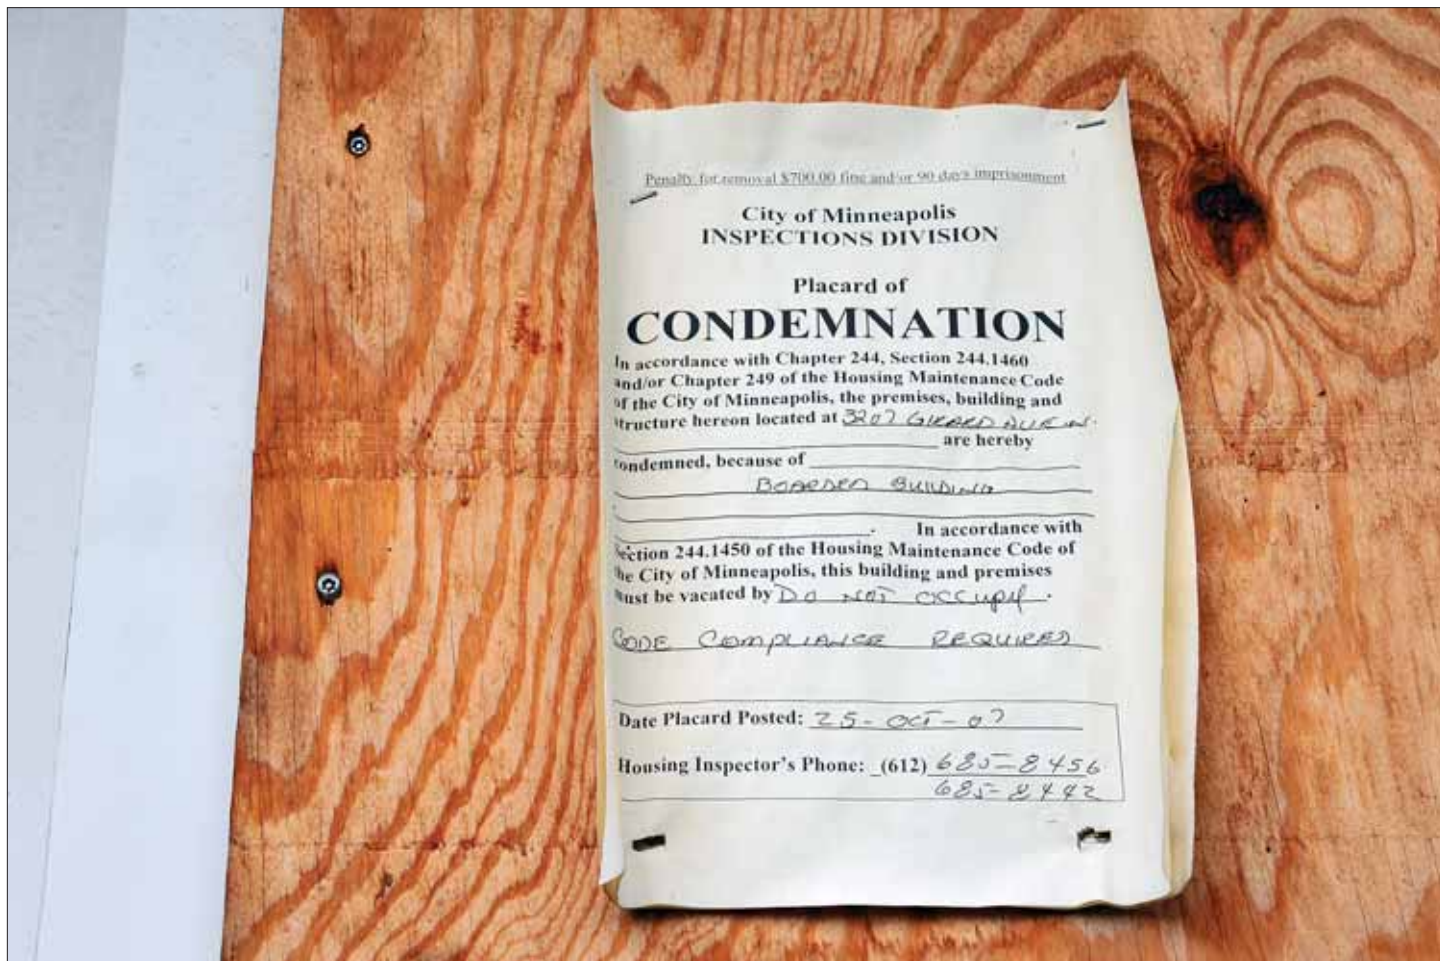 Penalty for removal $700.00 fine and/or 90 days imprisonment
City of Minneapolis
INSPECTIONS DIVISION
Placard of
CONDEMNATION
In accordance with Chapter 244, Section 244.1460
and/or Chapter 249 of the Housing Maintenance Code
of the City of Minneapolis, the premises, building and
structure hereon located at 3207 GIRARD AVE N.
are hereby
condemned, because of
BOARDED BUILDING
. In accordance with
Section 244.1450 of the Housing Maintenance Code of
the City of Minneapolis, this building and premises
must be vacated by DO NOT OCCUPY.
CODE COMPLIANCE REQUIRED
Date Placard Posted: 25-OCT-07
Housing Inspector's Phone: (612) 685-8456
685-8442